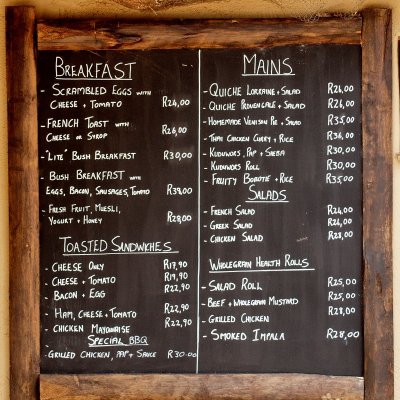 BREAKFAST
- SCRAMBLED EGGS WITH
CHEESE + TOMATO R24,00
- FRENCH TOAST WITH
CHEESE OR SYRUP R26,00
- "LITE" BUSH BREAKFAST R30,00
- BUSH BREAKFAST WITH
EGGS, BACON, SAUSAGES, TOMATO R39,00
- FRESH FRUIT, MUESLI,
YOGURT + HONEY R28,00
TOASTED SANDWICHES
- CHEESE ONLY R17,90
- CHEESE + TOMATO R19,90
- BACON + EGG R22,90
- HAM, CHEESE + TOMATO R22,90
- CHICKEN MAYONAISE R22,90
SPECIAL BBQ
- GRILLED CHICKEN, PAP + SAUCE R30.00
MAINS
- QUICHE LORRAINE + SALAD R26,00
- QUICHE PROVENCALE + SALAD R26,00
- HOMEMADE VENISON PIE + SALAD R35,00
- THAI CHICKEN CURRY + RICE R36,00
- KUDUWORS, PAP + SHEBA R30,00
- KUDUWORS ROLL R30,00
- FRUITY BOBOTIE + RICE R35,00
SALADS
- FRENCH SALAD R24,00
- GREEK SALAD R24,00
- CHICKEN SALAD R28,00
WHOLEGRAIN HEALTH ROLLS
- SALAD ROLL R25,00
- BEEF + WHOLEGRAIN MUSTARD R25,00
- GRILLED CHICKEN R28,00
- SMOKED IMPALA R28,00